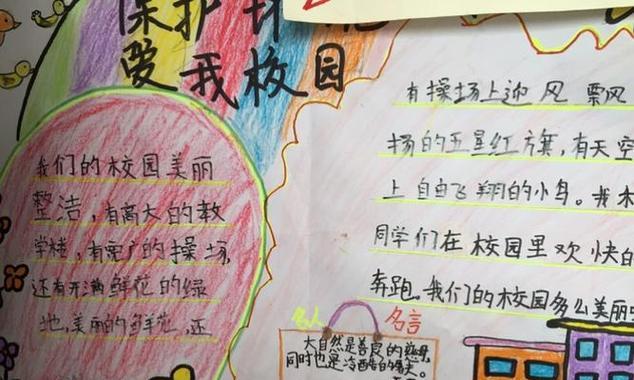 保护环
爱我校园
我们的校园美丽
整洁，有高大的教
学楼，有宽广的操场，
还有开满鲜花的绿
地，美丽的鲜花，还
有操场上迎风飘
扬的五星红旗，有天空
上自由飞翔的小鸟。我
同学们在校园里欢快的
奔跑。我们的校园多么美丽
名人名言
大自然是善良的慈母，
同时也是冷酷的